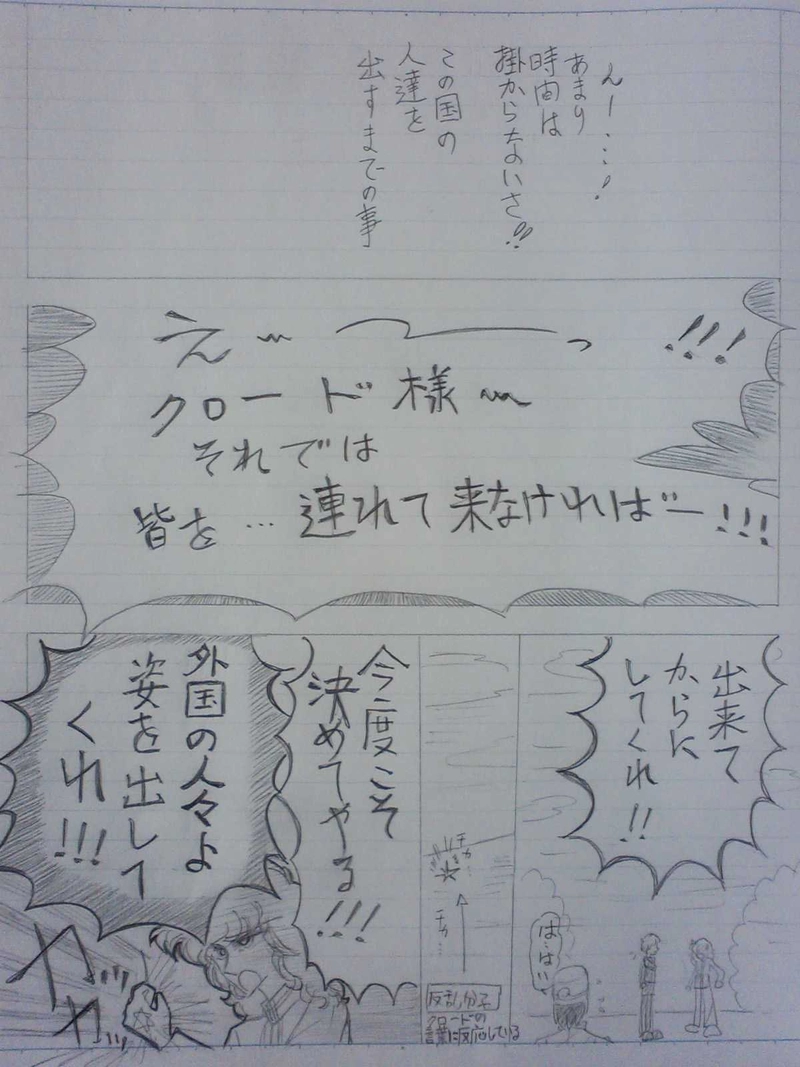 んー・・・!
あまり
時間は
掛からないさ!!
この国の
人達を
出すまでの事
え〜〜っ!!!
クロード様〜
それでは
皆を…連れて来なければー!!!
出来て
からに
してくれ!!
は…はい
チカ…
チカ…
反乱分子
クロードの
言葉に反応している
今度こそ
決めてやる!!!
外国の人々よ
姿を出して
くれ!!!
カッ